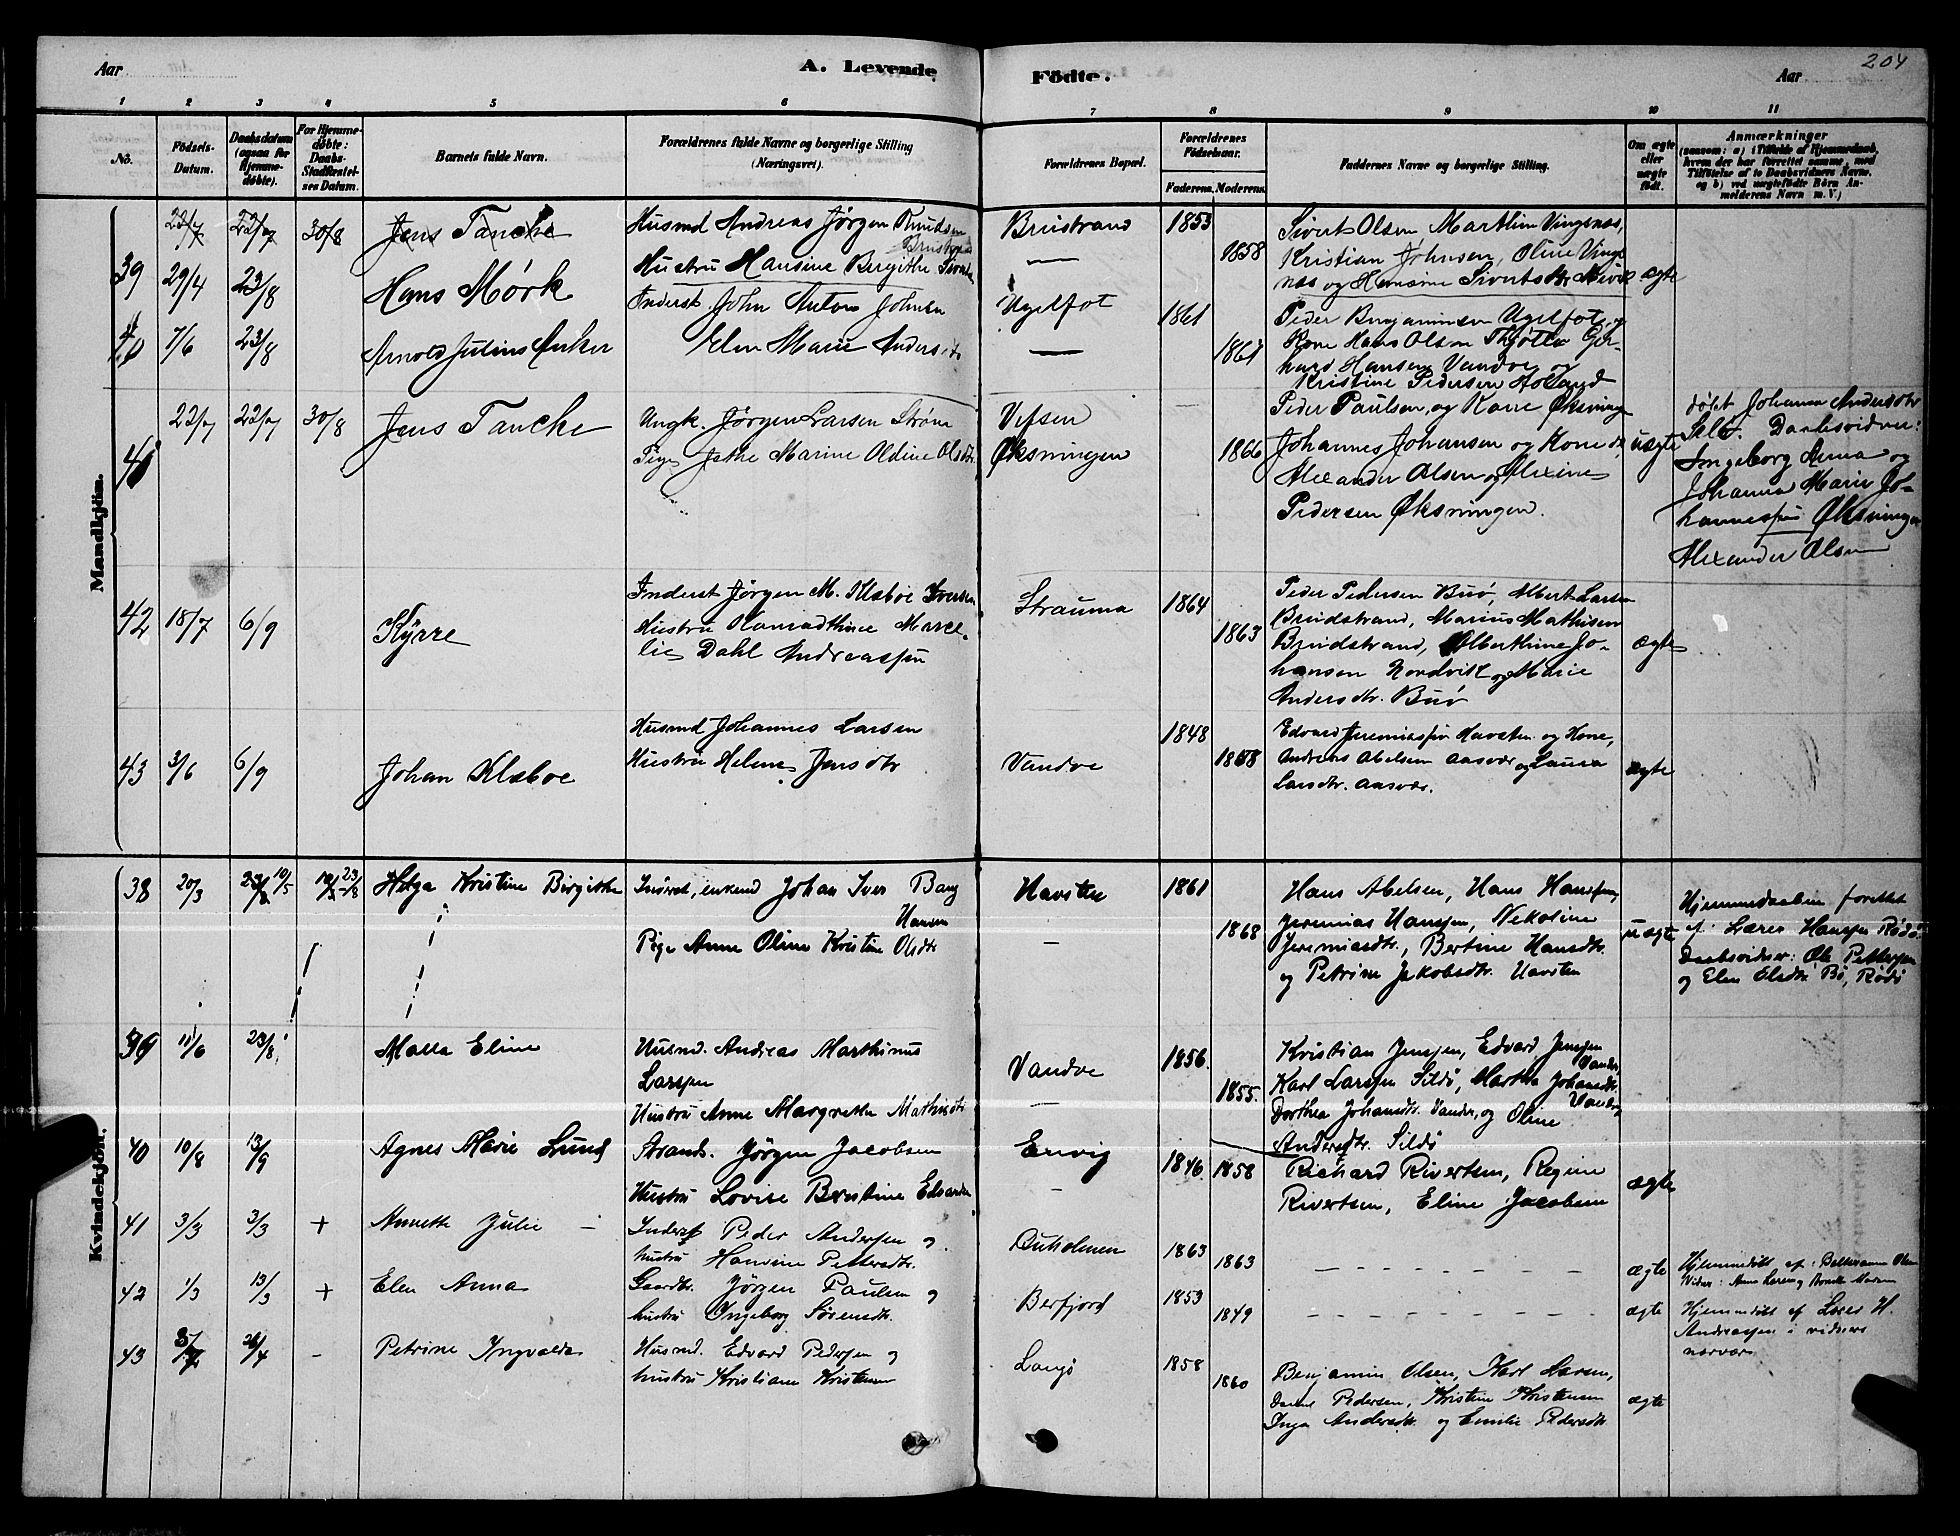 204
Aar
A. Levende
Födte.
Aar
1 2 3 4 5 6 7 8 9 10 11
No.
Födsels-Datum.
Daabsdatum (ogsaa for Hjemmedöbte).
For Hjemmedöbte: Daabs-Stadfæstelses Datum.
Barnets fulde Navn.
Forældrenes fulde Navne og borgerlige Stilling (Næringsvei).
Forældrenes Bopæl.
Forældrenes Födselsaar.
Faderens. Moderens.
Faddernes Navne og borgerlige Stilling.
Om ægte eller uægte födt.
Anmærkninger (saasom: a) i Tilfælde af Hjemmedaab, hvem der har forrettet samme, med Tilföielse af to Daabsvidners Navne, og b) ved uægtefödte Börn Anmelderens Navn m. V.)
Mandkjön.
22/7 30/8 Jens Tancke
39 29/4 23/8 Hans Mørk
Husmd Andreas Jørgen Knudsen
Brustrand
Hustru Hansine Bergithe
Brustrand
1853
1858
Sivert Olsen Marthin Vingsnæs,
Kristian Johnsen, Oline Ving
næs og Hansine Siverts
ægte
40 7/6 23/8 Arnold Julius Anker
Inderst. John Anton Johnsen
Elen Marie Anders
Ugelfot
1861
1861
Peder Benjaminsen Ugelfot og
Kone Hans Olsen Thjøtta Ger-
hard Hansen Vandve og
Kristine Pedersen
41 22/7 22/7 30/8 Jens Tancke
Ungk. Jørgen Larsen Strøm
Pige Jethe Marine Oldine Olsdtr
Vefsen
Øksningen
1866
Peder Paulsen og Kone Øksning
Johannes Johansen og Kone do
Alexander Olsen og Alexine
Pedersen Øksningen.
uægte
døbt Johanna Andersdtr
Daabsvidner:
Ingeborg Anna og
Johanna Marie Jo-
hannessen Øksningen
Alexander Olsen
42 18/7 6/9 Kyrre
Inderst Jørgen M. Klæboe Iversen
Hustru Konradthine Marel-
lie Dahl Andreassen
Strauma
1864
1863
Peder Pedersen Buø, Albert Larsen
Brudstrand, Marius Mathisen
Brudstrand, Alberthine Jo-
hansen Nordvik og Marie
Andersdtr. Buø
ægte
43 3/6 6/9 Johan Klæboe
Husmd Johannes Larsen
Hustru Helene Jensdtr
Vandve
1848
1858
Edvard Jeremiassen Havsten og Kone,
Andreas Abelsen Aasvær og Laura
Larsdtr. Aasvær.
ægte
Kvindekjön.
38 20/3 10/5 23/8 Helga Kristine Birgitte
Inderst, enkemd Johan Iver Bang
Hansen
Pige Anne Oline Kristine Olsdtr
Havsten
1861
1868
Hans Abelsen, Hans Hanssen,
Jeremias Hanssen, Nekoline
Jeremiasdtr., Bertine Hansdtr.
og Petrine Jakobsdtr. Havsten
uægte
Hjemmedaaben forrettet
af Lærer Hanssen Rødø.
Daabsvidner: Ole Pettersen
og Elen Olsdtr Bø, Rødø
39 11/6 23/8 Malla Eline
Husmd. Andreas Marthinus
Larssen
Hustru Anne Margrethe Mathisdtr
Vandve
1856.
1855.
Kristian Jenssen, Edvard Jenssen
Vandve,
Karl Larssen Sildø, Martha Johansdtr.
Vandve
Dorthea Johansdtr. Vandve, og Oline
Andersdtr. Sildø
40 10/8 13/9 Agnes Marie Lund
Strands. Jørgen Jacobsen
Hustru Lovise Berntine Edvardsen
Ervig
1846 1858
Richard Rivertsen, Regine
Rivertsen, Eline Jacobsen
ægte
41 3/3 3/3 + Annette Julie
Inderst Peder Andersen og
hustru Hansine Pettersdtr.
Buholmen
1863
1863
ægte
Hjemmedøbt af:
42 1/3 13/3 + Elen Anna
Gaardbr. Jørgen Paulsen og
hustru Ingeborg Sørensdtr.
Berfjord
1853
1849
ægte
Hjemmedøbt af Lærer H.
Andreassen i vidners
nærvær
43 26/4 Petrine Ingvalda
Husmd. Edvard Pedersen og
hustru Kristiane Kristensen
Langø
1858
1860
Benjamin Olsen, Karl Larsen,
Pedersen, Kristine Kristensen
Inga Andersdtr. og Emilie Pedersdtr.
ægte